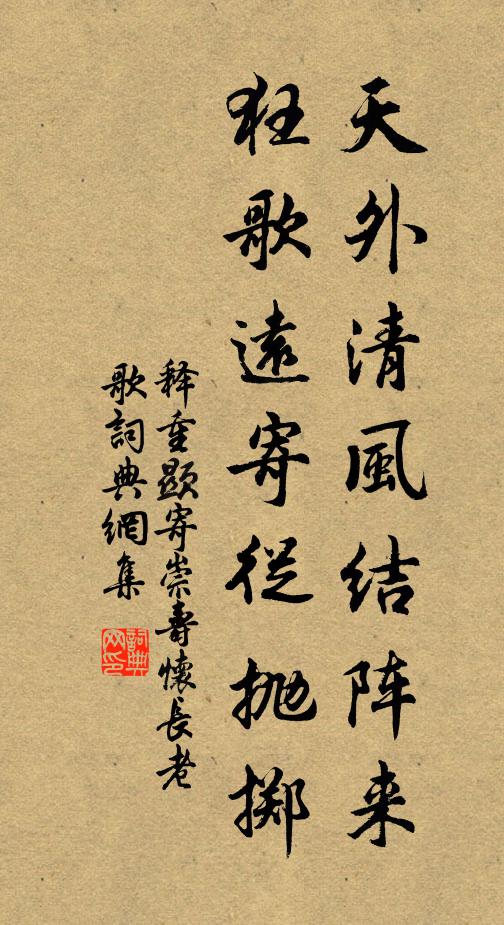 天外清風结阵来
狂歌遠寄從抛掷
释重顯寄崇壽懷長老
歌詞典網集
詞典
网印